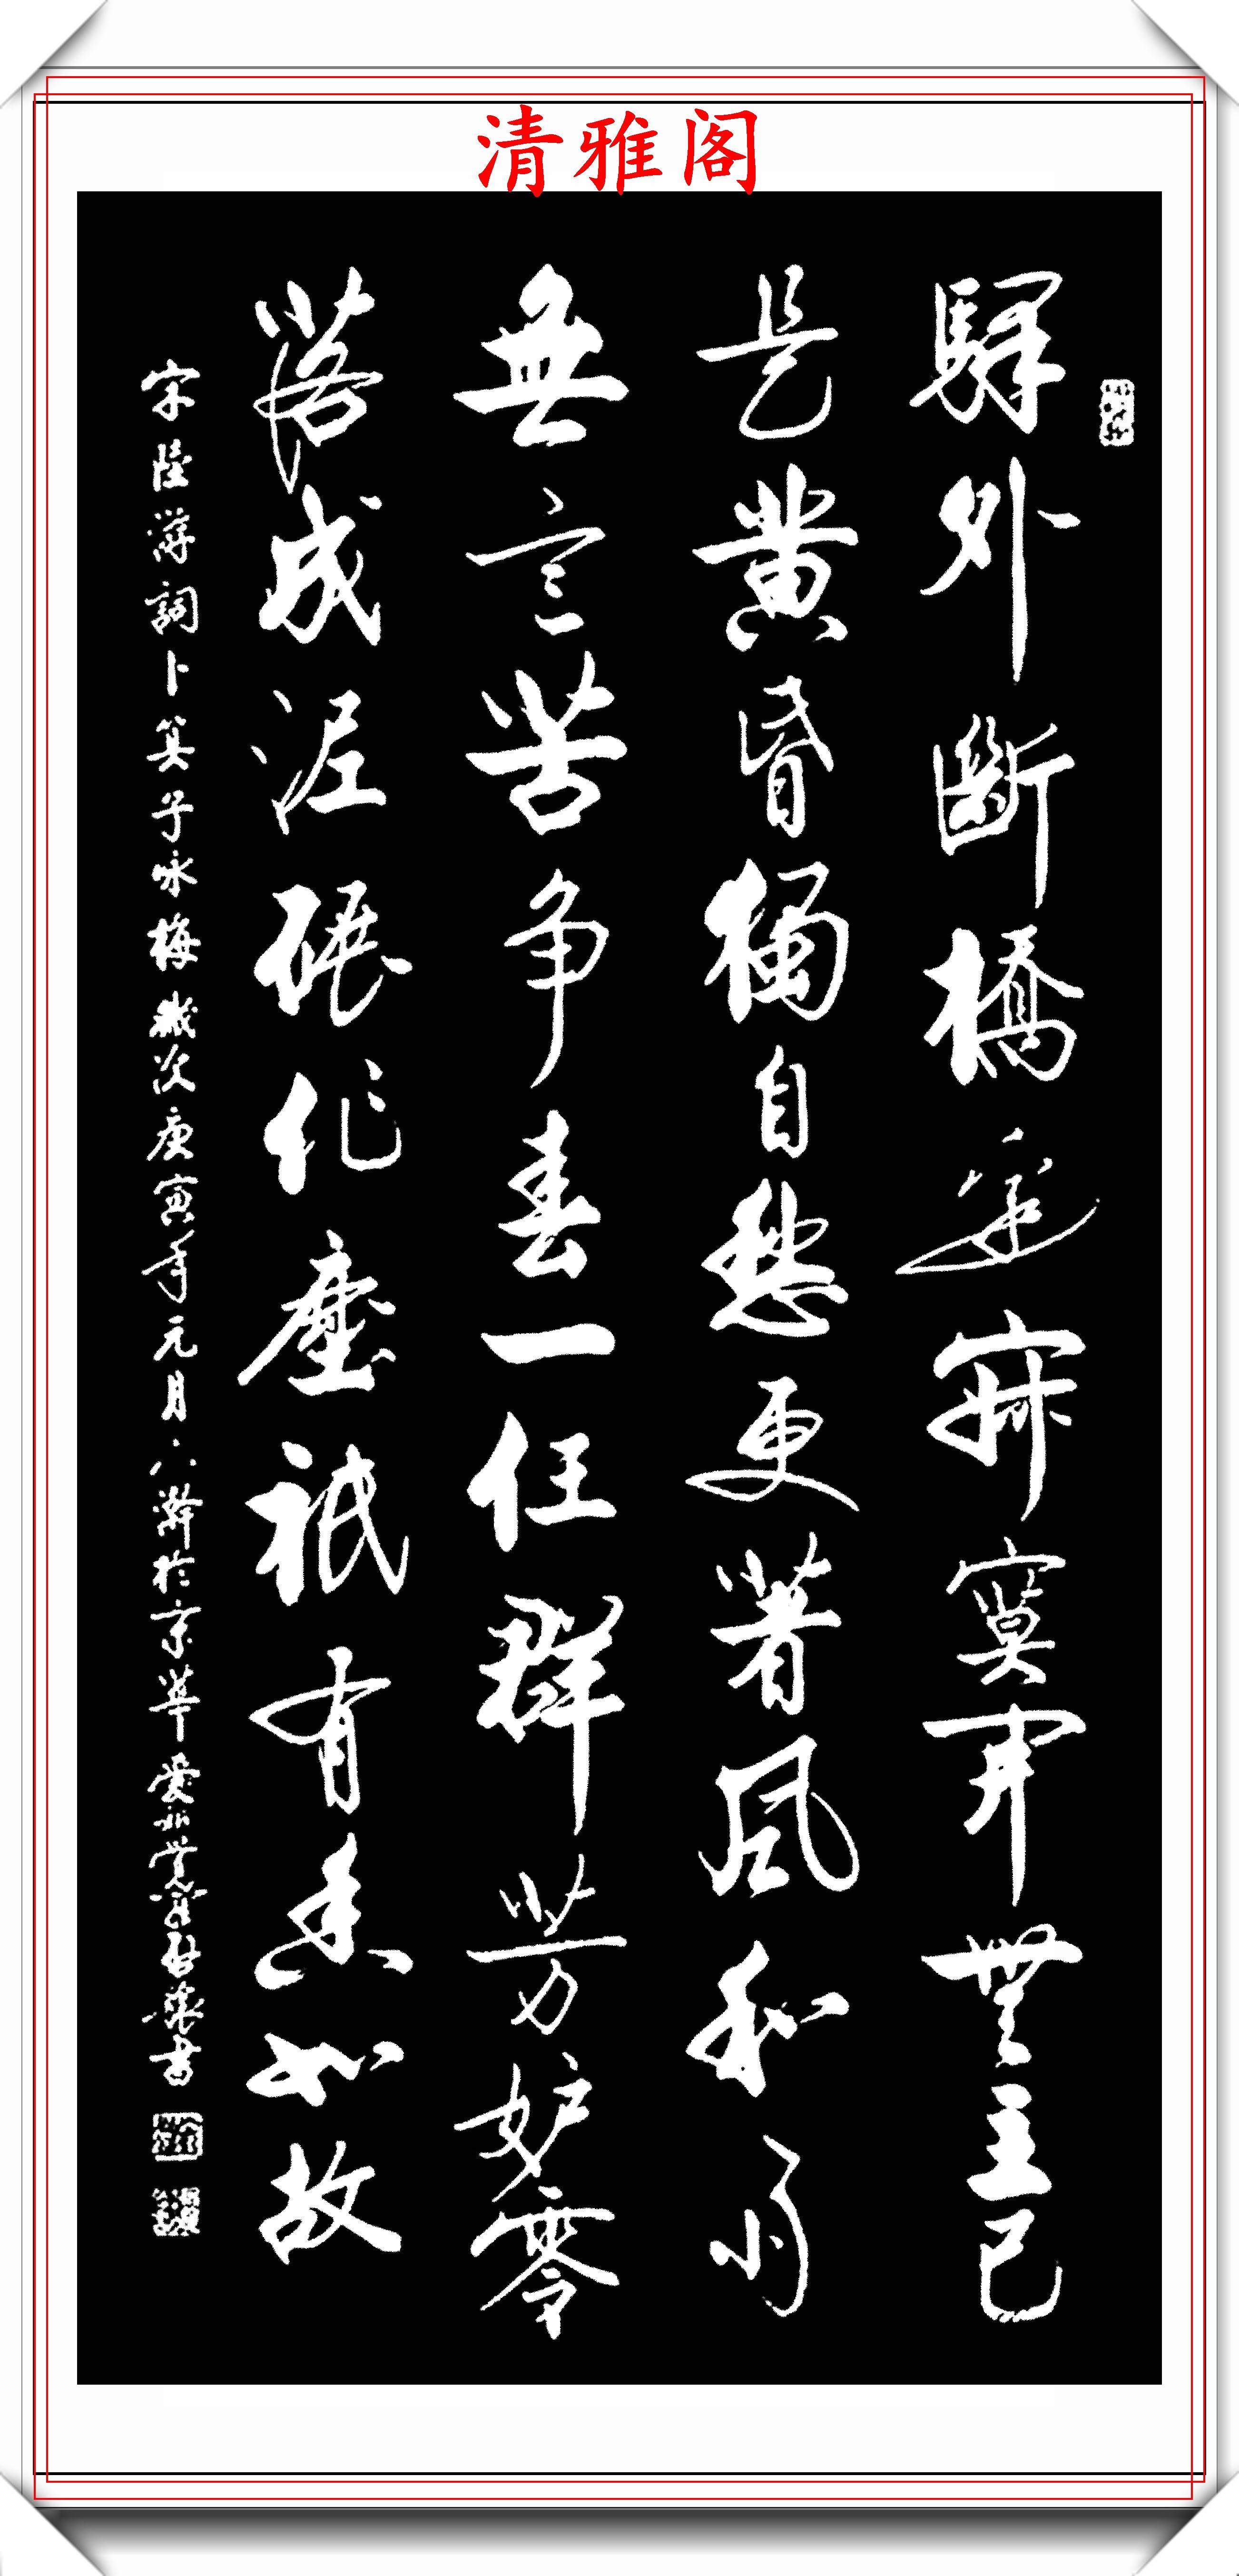 清雅阁
驛外斷橋邊寂寞開無主已
是黄昏獨自愁更著風和雨
無言苦争春一任群芳妒零
落成泥碾作塵祇有香如故
宋陸游詞卜算子咏梅歲次庚寅年元月六於京華愛書